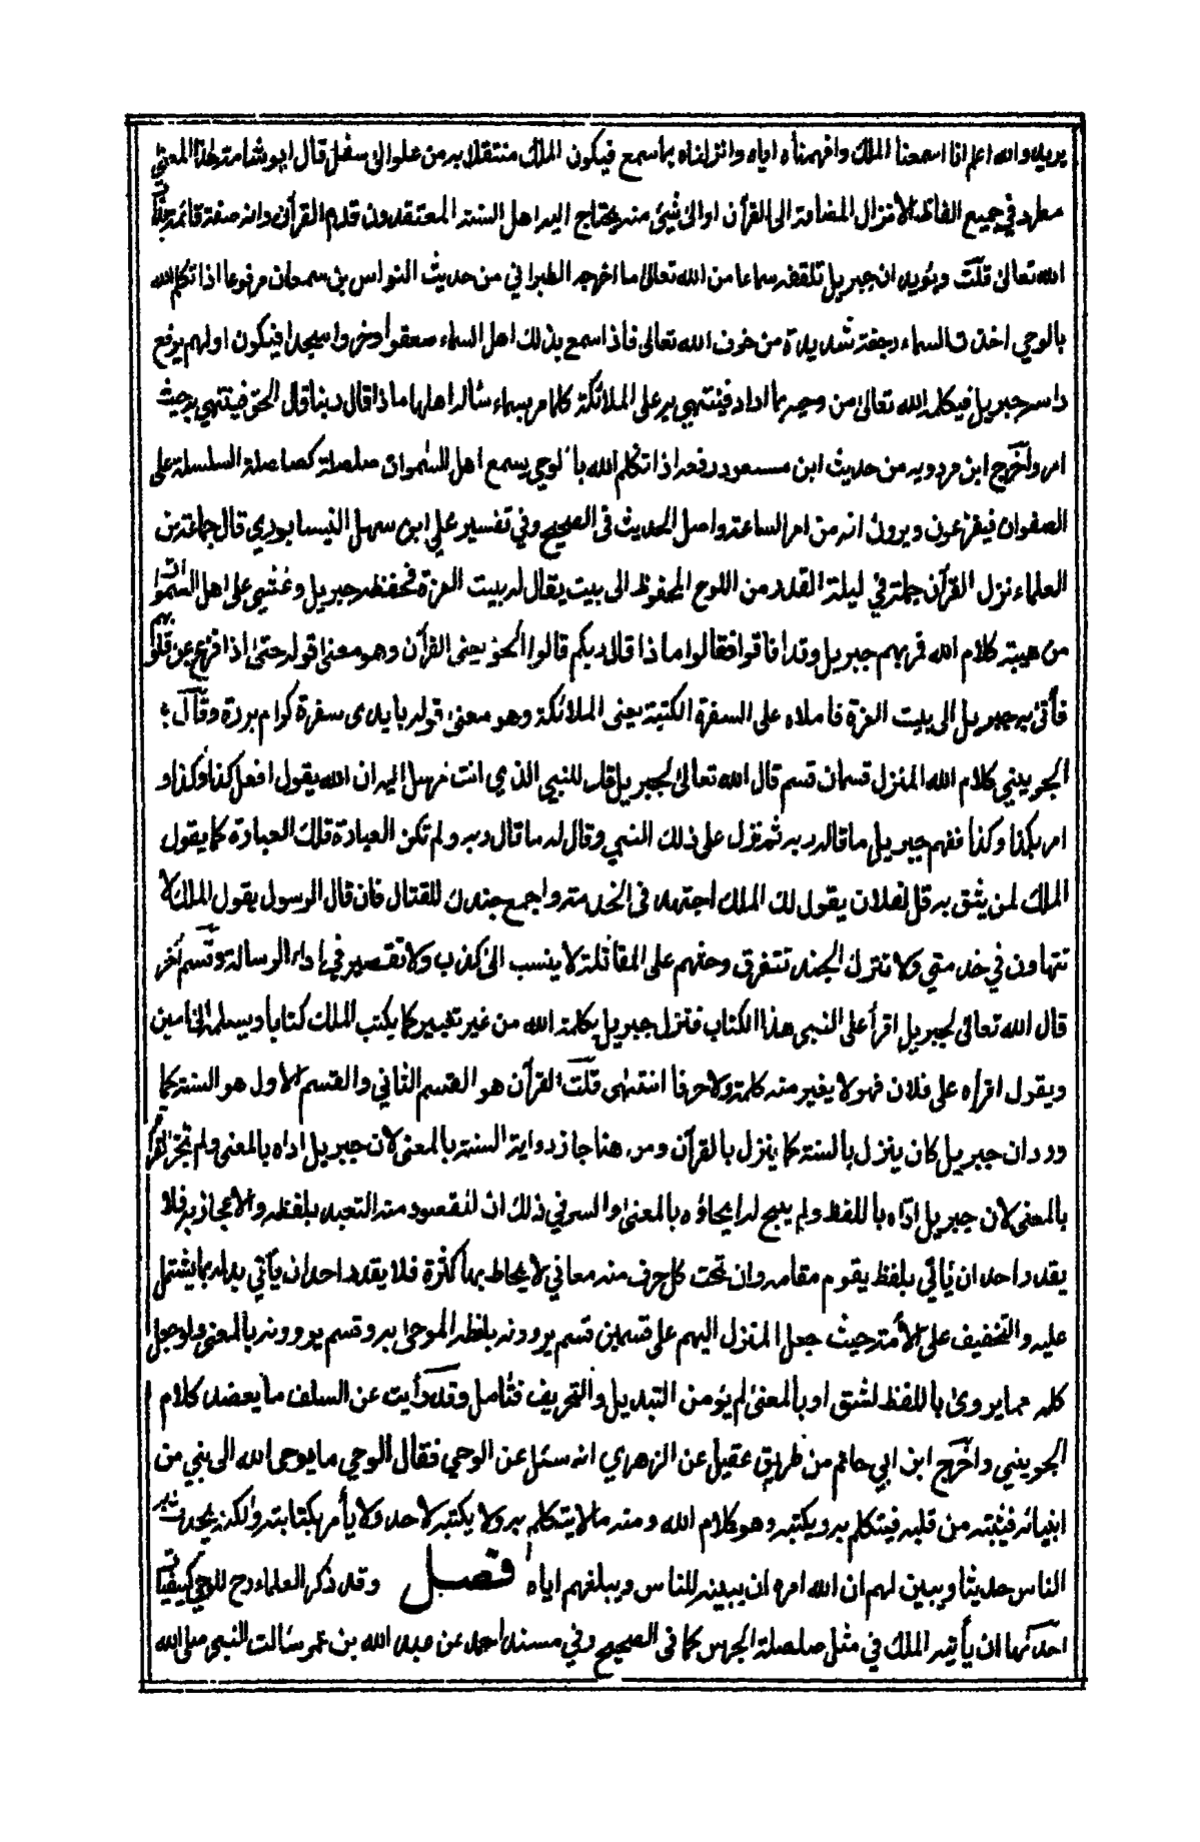 يريد والله اعلم انا اسمعنا الملك وافهمناه اياه وانزلناه بما سمع فيكون الملك منتقلا به من علو الى سفل قال ابو شامة وهذا المعنى
مطرد في جميع الفاظ الانزال المضافة الى القرآن او الى شيئ منه يحتاج اليه اهل السنة المعتقدون قدم القرآن وانه صفة قائمة بذات
الله تعالى قلت ويؤيد ان جبريل تلقفه سماعا من الله تعالى ما اخرجه الطبراني من حديث النواس بن سمعان مرفوعا اذا تكلم الله
بالوحي اخذت السماء رجفة شديدة من خوف الله تعالى فاذا سمع بذلك اهل السماء صعقوا وخروا سجدا فيكون اولهم يرفع
راسه جبريل فيكلمه الله تعالى من وحيه بما اراد فينتهي به على الملائكة كلما مر بسماء سأله اهلها ماذا قال ربنا قال الحق فينتهي به حيث
امر واخرج ابن مردويه من حديث ابن مسعود رفعه اذا تكلم الله بالوحي يسمع اهل السموات صلصلة كصلصلة السلسلة على
الصفوان فيفزعون ويرون انه من امر الساعة واصل الحديث فى الصحيح وفي تفسير علي ابن سهل النيسابوري قال جماعة من
العلماء نزل القرآن جملة في ليلة القدر من اللوح المحفوظ الى بيت يقال له بيت العزة فحفظه جبريل وغشي على اهل السموات
من هيبة كلام الله فمر بهم جبريل وقد افاقوا فقالوا ماذا قال ربكم قالوا الحق يعنى القرآن وهو معنى قوله حتى اذا فزع عن قلوبهم
فأتى به جبريل الى بيت العزة فاملاه على السفرة الكتبة يعنى الملائكة وهو معنى قوله بايدى سفرة كرام بررة وقال
الجويني كلام الله المنزل قسمان قسم قال الله تعالى لجبريل قل للنبي الذي انت مرسل اليه ان الله يقول افعل كذا وكذا و
امر بكذا وكذا ففهم جبريل ما قاله ربه ثم نزل على ذلك النبي وقال له ما قال ربه ولم تكن العبارة تلك العبارة كما يقول
الملك لمن يثق به قل لفلان يقول لك الملك اجتهد فى الخدمة واجمع جندك للقتال فان قال الرسول يقول الملك لا
تتهاون في خدمتي ولا تترك الجند تتفرق وحثهم على المقاتلة لا ينسب الى كذب ولا تقصير في اداء الرسالة وقسم آخر
قال الله تعالى لجبريل اقرأ على النبي هذا الكتاب فنزل جبريل بكلمة الله من غير تغيير كما يكتب الملك كتابا ويسلمه الى امين
ويقول اقرأه على فلان فهو لا يغير منه كلمة ولا حرفا انتهى قلت القرآن هو القسم الثاني والقسم الاول هو السنة كما
ورد ان جبريل كان ينزل بالسنة كما ينزل بالقرآن ومن هنا جاز رواية السنة بالمعنى لان جبريل اداه بالمعنى ولم تجز القرأة
بالمعنى لان جبريل اداه باللفظ ولم يبح له ايحاؤه بالمعنى والسر في ذلك ان المقصود منه التعبد بلفظه والاعجاز به فلا
يقدر احد ان يأتي بلفظ يقوم مقامه وان تحت كل حرف منه معاني لا يحاط بها كثرة فلا يقدر احد ان يأتي بدله بما يشتمل
عليه والتخفيف على الأمة حيث جعل المنزل اليهم على قسمين قسم يروونه بلفظه الموحى به وقسم يروونه بالمعنى ولو جعل
كله مما يروى باللفظ لشق او بالمعنى لم يؤمن التبديل والتحريف فتأمل وقد رأيت عن السلف ما يعضد كلام
الجويني واخرج ابن ابي حاتم من طريق عقيل عن الزهري انه سئل عن الوحي فقال الوحي ما يوحى الله الى نبي من
انبيائه فيثبته من قلبه فيتكلم به ويكتبه وهو كلام الله ومنه ما لا يتكلم به ولا يكتبه لاحد ولا يأمر بكتابته ولكنه يحدث به
الناس حديثا ويبين لهم ان الله امره ان يبينه للناس ويبلغهم اياه فصل وقد ذكر العلماء رح للوحي كيفيات
احدـها ان يأتيه الملك في مثل صلصلة الجرس كما فى الصحيح وفي مسند احمد عن عبد الله بن عمر سألت النبي صلى الله